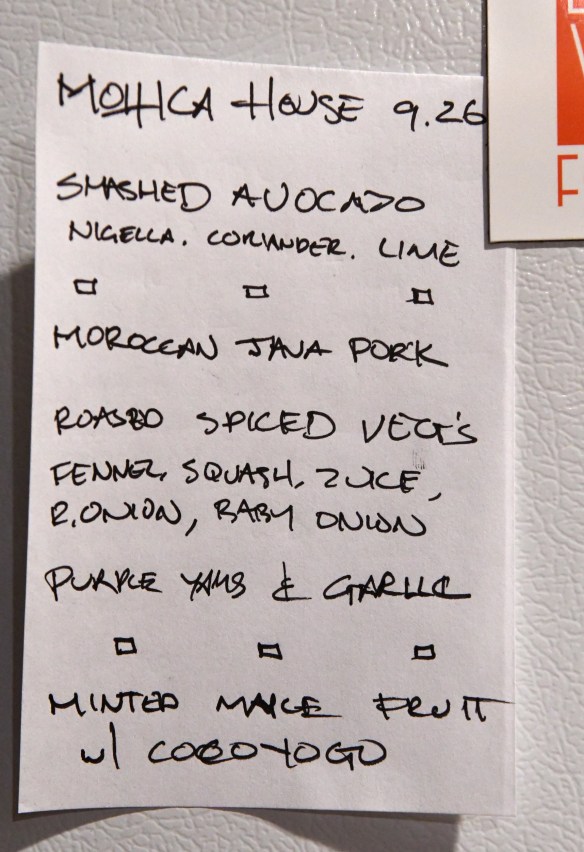 MOHICA HOUSE 9.26
SMASHED AVOCADO
NIGELLA. CORIANDER. LIME
MOROCCAN JAVA PORK
ROASTED SPICED VEGE'S
FENNEL, SQUASH, ZUKE,
R.ONION, BABY ONION
PURPLE YAMS & GARLIC
MINTED FRUIT
w/ COCO YOGO
F